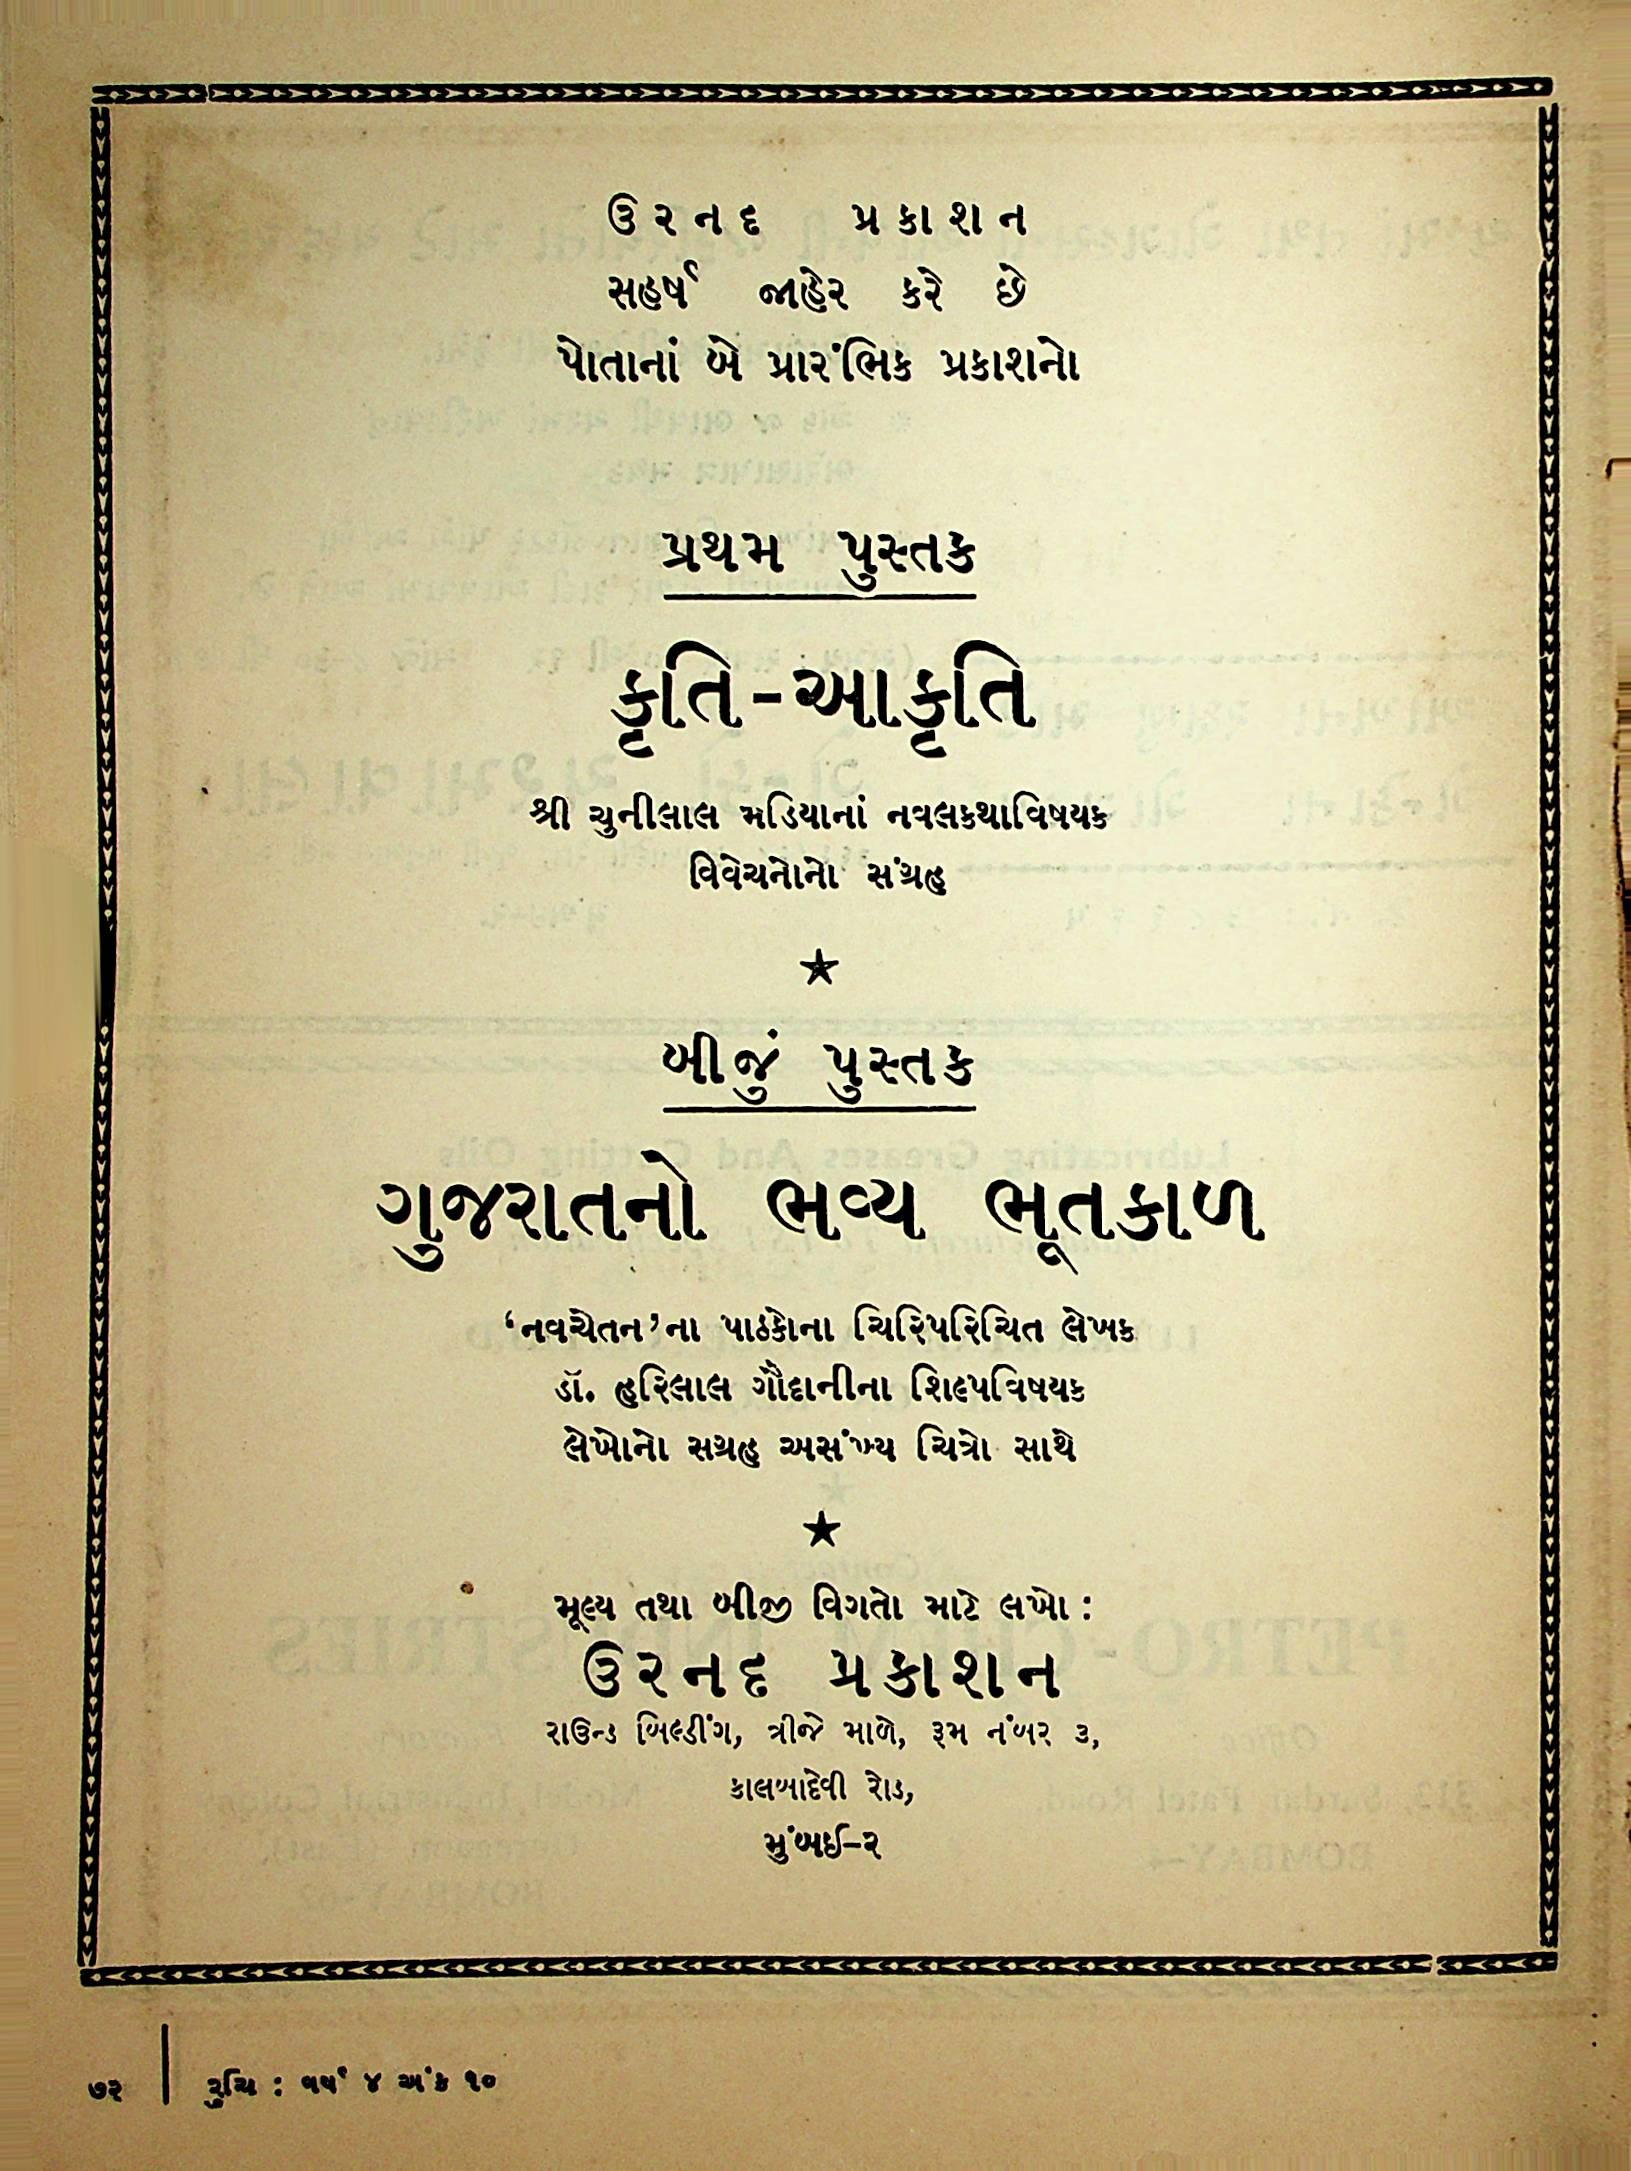 ઉરનદ પ્રકાશન
સહર્ષ જાહેર કરે છે
પોતાનાં બે પ્રારંભિક પ્રકાશનો
પ્રથમ પુસ્તક
કૃતિ-આકૃતિ
શ્રી ચુનીલાલ મડિયાનાં નવલકથાવિષયક
વિવેચનોનો સંગ્રહ
★
બીજું પુસ્તક
ગુજરાતનો ભવ્ય ભૂતકાળ
‘નવચેતન’ના પાઠકોના ચિરિપરિચિત લેખક
ડૉ. હરિલાલ ગૌદાનીના શિલ્પવિષયક
લેખોનો સગ્રહ અસંખ્ય ચિત્રો સાથે
★
મૂલ્ય તથા બીજી વિગતો માટે લખો :
ઉરનદ પ્રકાશન
રાઉન્ડ બિલ્ડીંગ, ત્રીજે માળે, રૂમ નંબર ૩,
કાલબાદેવી રોડ,
મુંબઈ-૨
૭૨ | રુચિ : વર્ષ ૪ અંક ૧૦